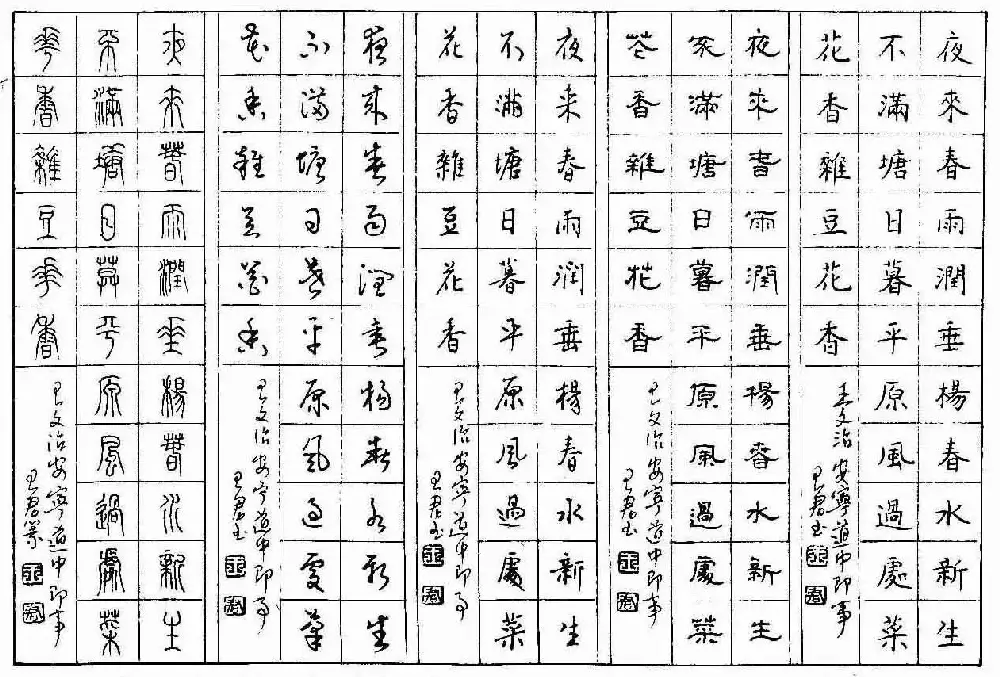 夜來春雨潤垂楊春水新生
不滿塘日暮平原風過處菜
花香雜豆花香
王文治安寧道中即事
王君书
夜來春雨潤垂楊春水新生
不滿塘日暮平原風過處菜
花香雜豆花香
王文治安寧道中即事
王君书
夜来春雨润垂楊春水新生
不滿塘日暮平原風過處菜
花香雜豆花香
王文治安寧道中即事
王君书
夜來春雨潤垂楊春水新生
不滿塘日暮平原風過處菜
花香雜豆花香
王文治安寧道中即事
王君书
夜來春雨潤垂楊春水新生
不滿塘日暮平原風過處菜
華香雜豆華香
王文治安寧道中即事
王君篆